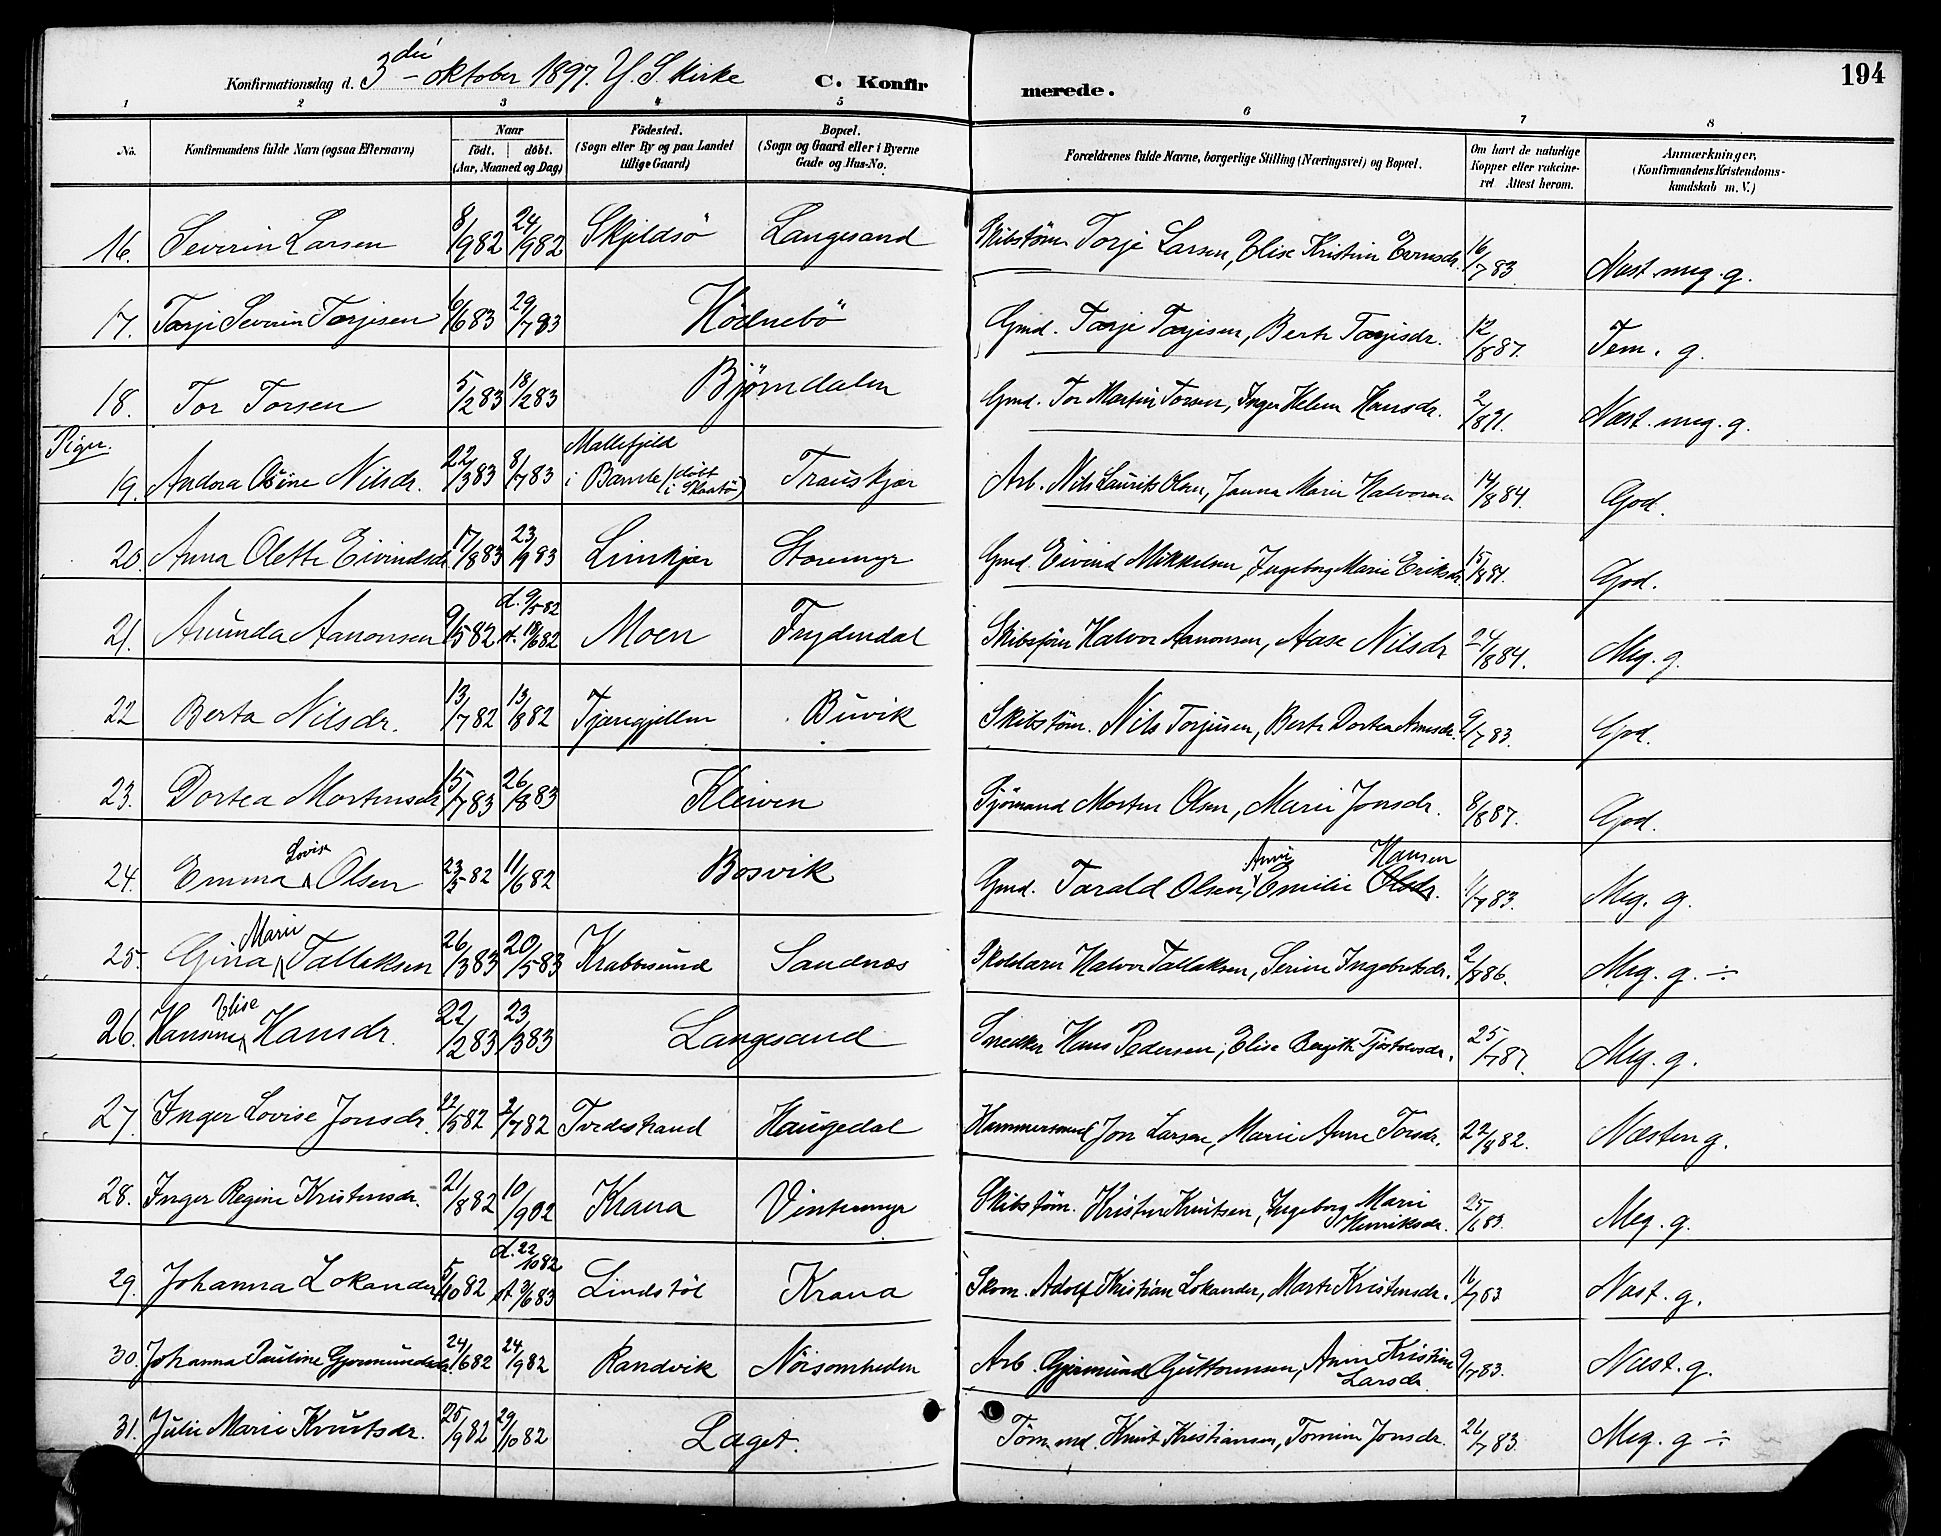 194
Konfirmationsdag d. 3die oktober 1897. Y. S. kirke C. Konfirmerede.
1 2 3 4 5 6 7 8
No. Konfirmandens fulde Navn (ogsaa Efternavn) Naar födt. döbt. (Aar, Maaned og Dag) Födested. (Sogn eller By og paa Landet tillige Gaard) Bopæl. (Sogn og Gaard eller i Byerne Gade og Hus-No. Forældrenes fulde Navne, borgerlige Stilling (Næringsvei) og Bopæl. Om havt de naturlige Kopper eller vakcineret Attest herom. Anmærkninger. (Konfirmandens Kristendomskundskab m. V.)
16. Severin Larsen 8/9 82 24/9 82 Skjeldsö Langesand Skibstøm. Torje Larsen, Elise Kristine 16/7 83. Næst meg. g.
17. Torje Severin Torjesen 6/6 83 29/7 83 Hödnebö Gmd. Torje Torjesen, Berte Torjesdr. 12/8 87. Tem. g.
18. Tor Torsen 5/2 83 18/2 83 Björndalen Gmd. Tor Martin Torsen, Inger Helene Hansdr. 2/8 91. Næst. meg. g.
Piger.
19. Andora Osine Nilsdr. 22/3 83 8/7 83 Mallefjeld i Bamle (döbt i Skaatö) Trauskjær Arb. Nils Laurits Olsen, Janna Marie Halvorsen 14/8 84. God.
20. Anna Olette Eivindsdr 17/8 83 23/9 83 Limkjær Storemyr Gmd. Eivind Mikkelsen, Ingeborg Marie Eriksdr. 15/8 84. God.
21. Amunda Aanonsen 9/5 82 d. 9/5 82 st. 18/6 82 Moen Frydendal Skibsförer Halvor Aanonsen, Aase Nilsdr 24/8 84. Meg. g.
22 Berta Nilsdr. 13/7 82 13/8 82 Buvik Skibstøm. Nils Torjusen, Berte Dortea 9/7 83. God.
23. Dortea Mortensdr 15/7 83 26/8 83 Kleiven Sjömand Morten Olsen, Marie Jonsdr. 8/8 87. God.
24. Emma Lovise Olsen 23/5 82 11/6 82 Bosvik Gmd. Tarald Olsen, Anne Emilie Hansen Olsdr. 83. Meg. g.
25. Gina Marie Tallaksen 26/3 83 20/5 83 Krabbesund Sandnes Skolelærer Halvor Tallaksen, Serine Ingebretsdr. 2/8 86. Meg. g. ÷
26. Hansine Elise Hansdr. 22/2 83 23/3 83 Langesand Snedker Hans Pedersen, Elise Bergitte Tjöstolvsdr. 25/7 87. Meg. g.
27. Inger Lovise Jonsdr. 22/5 82 2/7 82 Tvedestrand Haugedal Hammersmed Jon Larsen, Marie Anne Torsdr. 22/8 82. Næsten g.
28. Inger Regine Kristensdr. 21/8 82 10/9 02 Krana Vintermyr Skibstøm. Kristen Knutsen, Ingeborg Marie Henriksdr. 25/6 83. Meg. g.
29. Johanna Lokander 5/10 82 d. 22/10 82 st. 3/6 83 Lindstöl Krana Skom. Adolf Kristian Lokander, Marte Kristensdr. 16/7 83 Næst. g.
30. Johanna Pauline Gjermundsdr. 24/6 82 24/9 82 Randvik Nöisomheden Arb. Gjermund Guttormsen, Anne Kristine Larsdr. 9/7 83. Næst. g.
31. Julie Marie Knutsdr. 25/9 82 29/10 82 Laget. Töm.md. Knut Kristiansen, Tomine Jonsdr. 26/7 83 Meg. g ÷